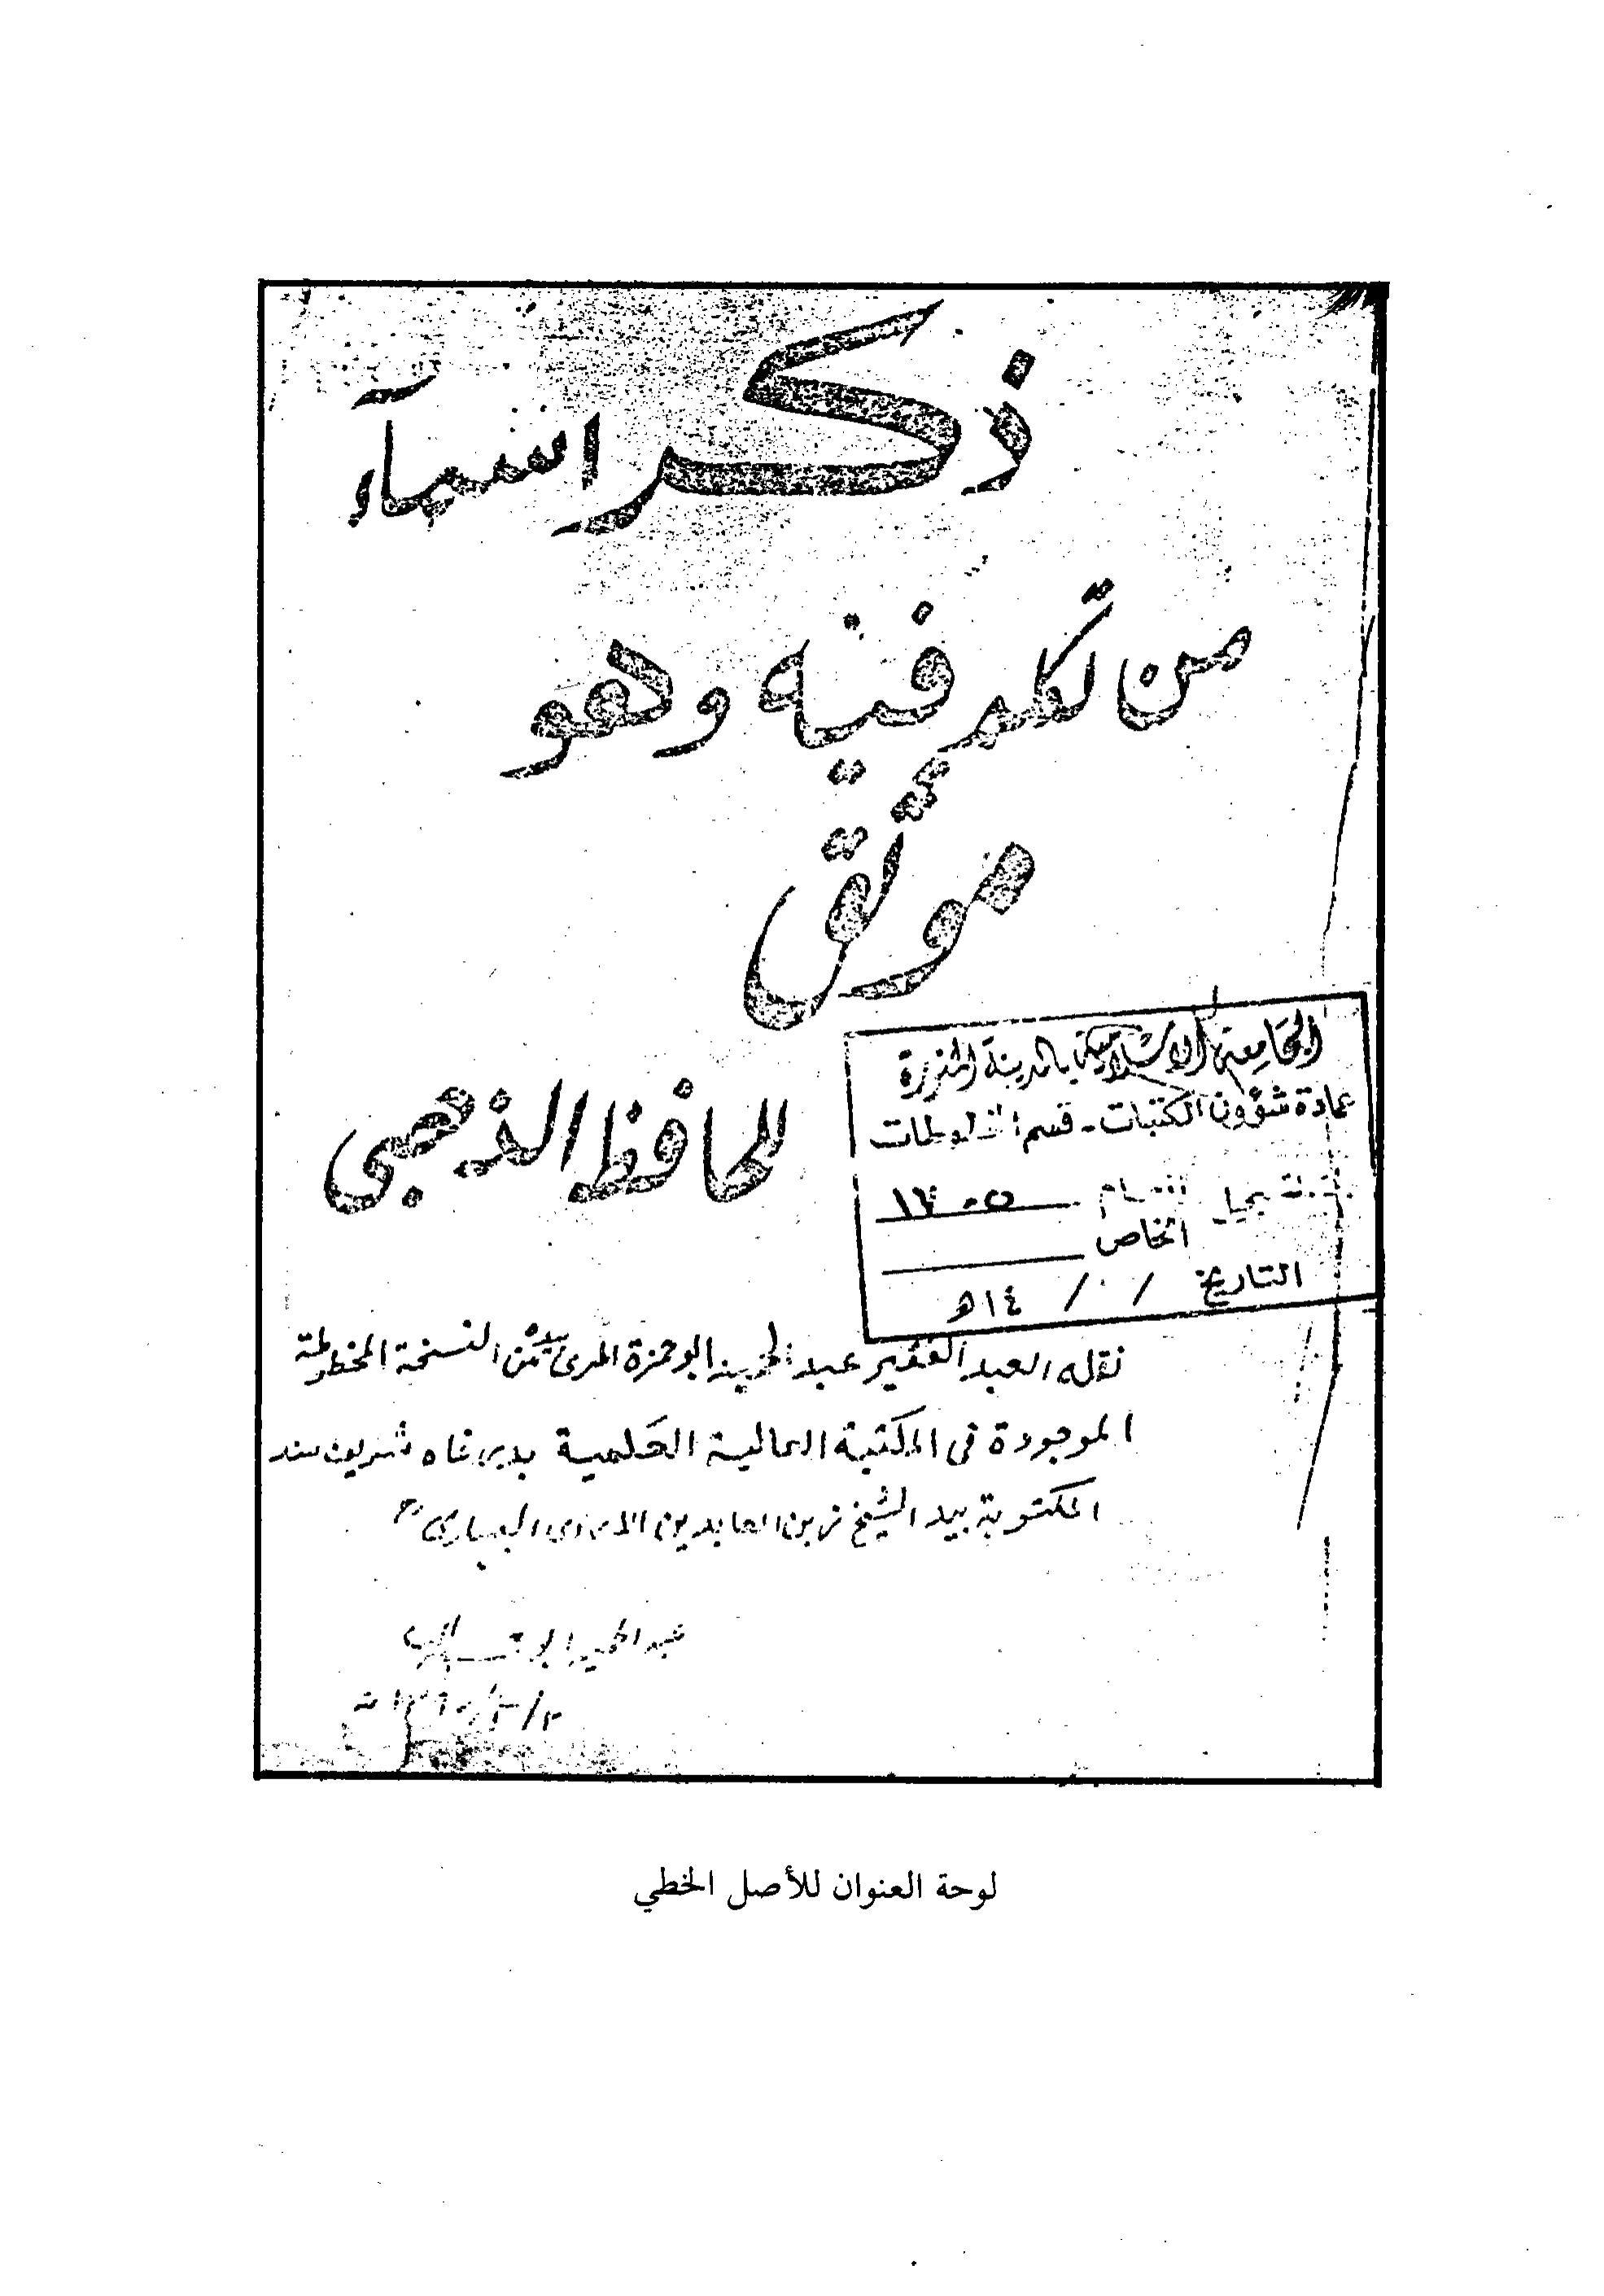 ذكر اسمآء
من تكلم فيه وهو
موثق
للحافظ الذهبي
الجامعة الاسلامية بالمدينة المنورة
عمادة شؤون المكتبات - قسم المخطوطات
التاريخ / / ١٤هـ
الخاص
نقله العبد الفقير عبد ابو حمزة من النسخة المخطوطة
الموجودة فى المكتبة العالية العلمية
المكتوبة بيد الشيخ زين العابدين
لوحة العنوان للأصل الخطي